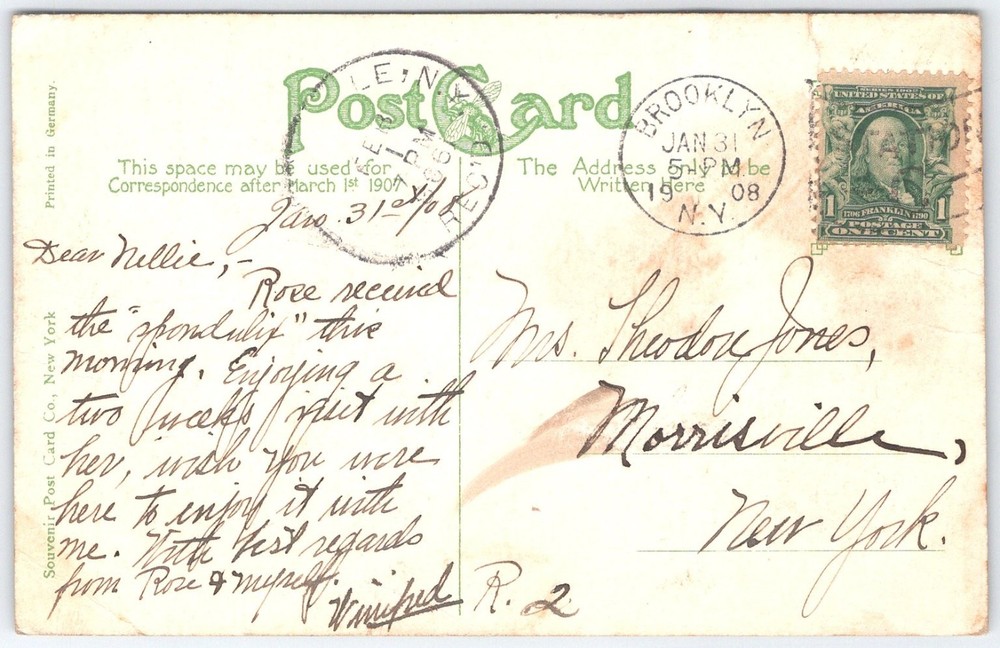 Post Card
This space may be used for
Correspondence after March 1st 1907
The Address only to be
Written Here
Printed in Germany.
Souvenir Post Card Co., New York
LE, N.Y.
FEB
1
7 PM
REC'D
BROOKLYN
JAN 31
5-PM
19 08
N.Y.
SERIES 1902
UNITED STATES OF
AMERICA
1 1
1706 FRANKLIN 1790
POSTAGE
ONE CENT
Jan. 31st/08
Dear Nellie,-
Rose received
the "spondulix" this
morning. Enjoying a
two weeks visit with
her, wish you were
here to enjoy it with
me. With best regards
from Rose & myself.
Winifred
Mrs. Theodore Jones,
Morrisville,
New York.
R. 2